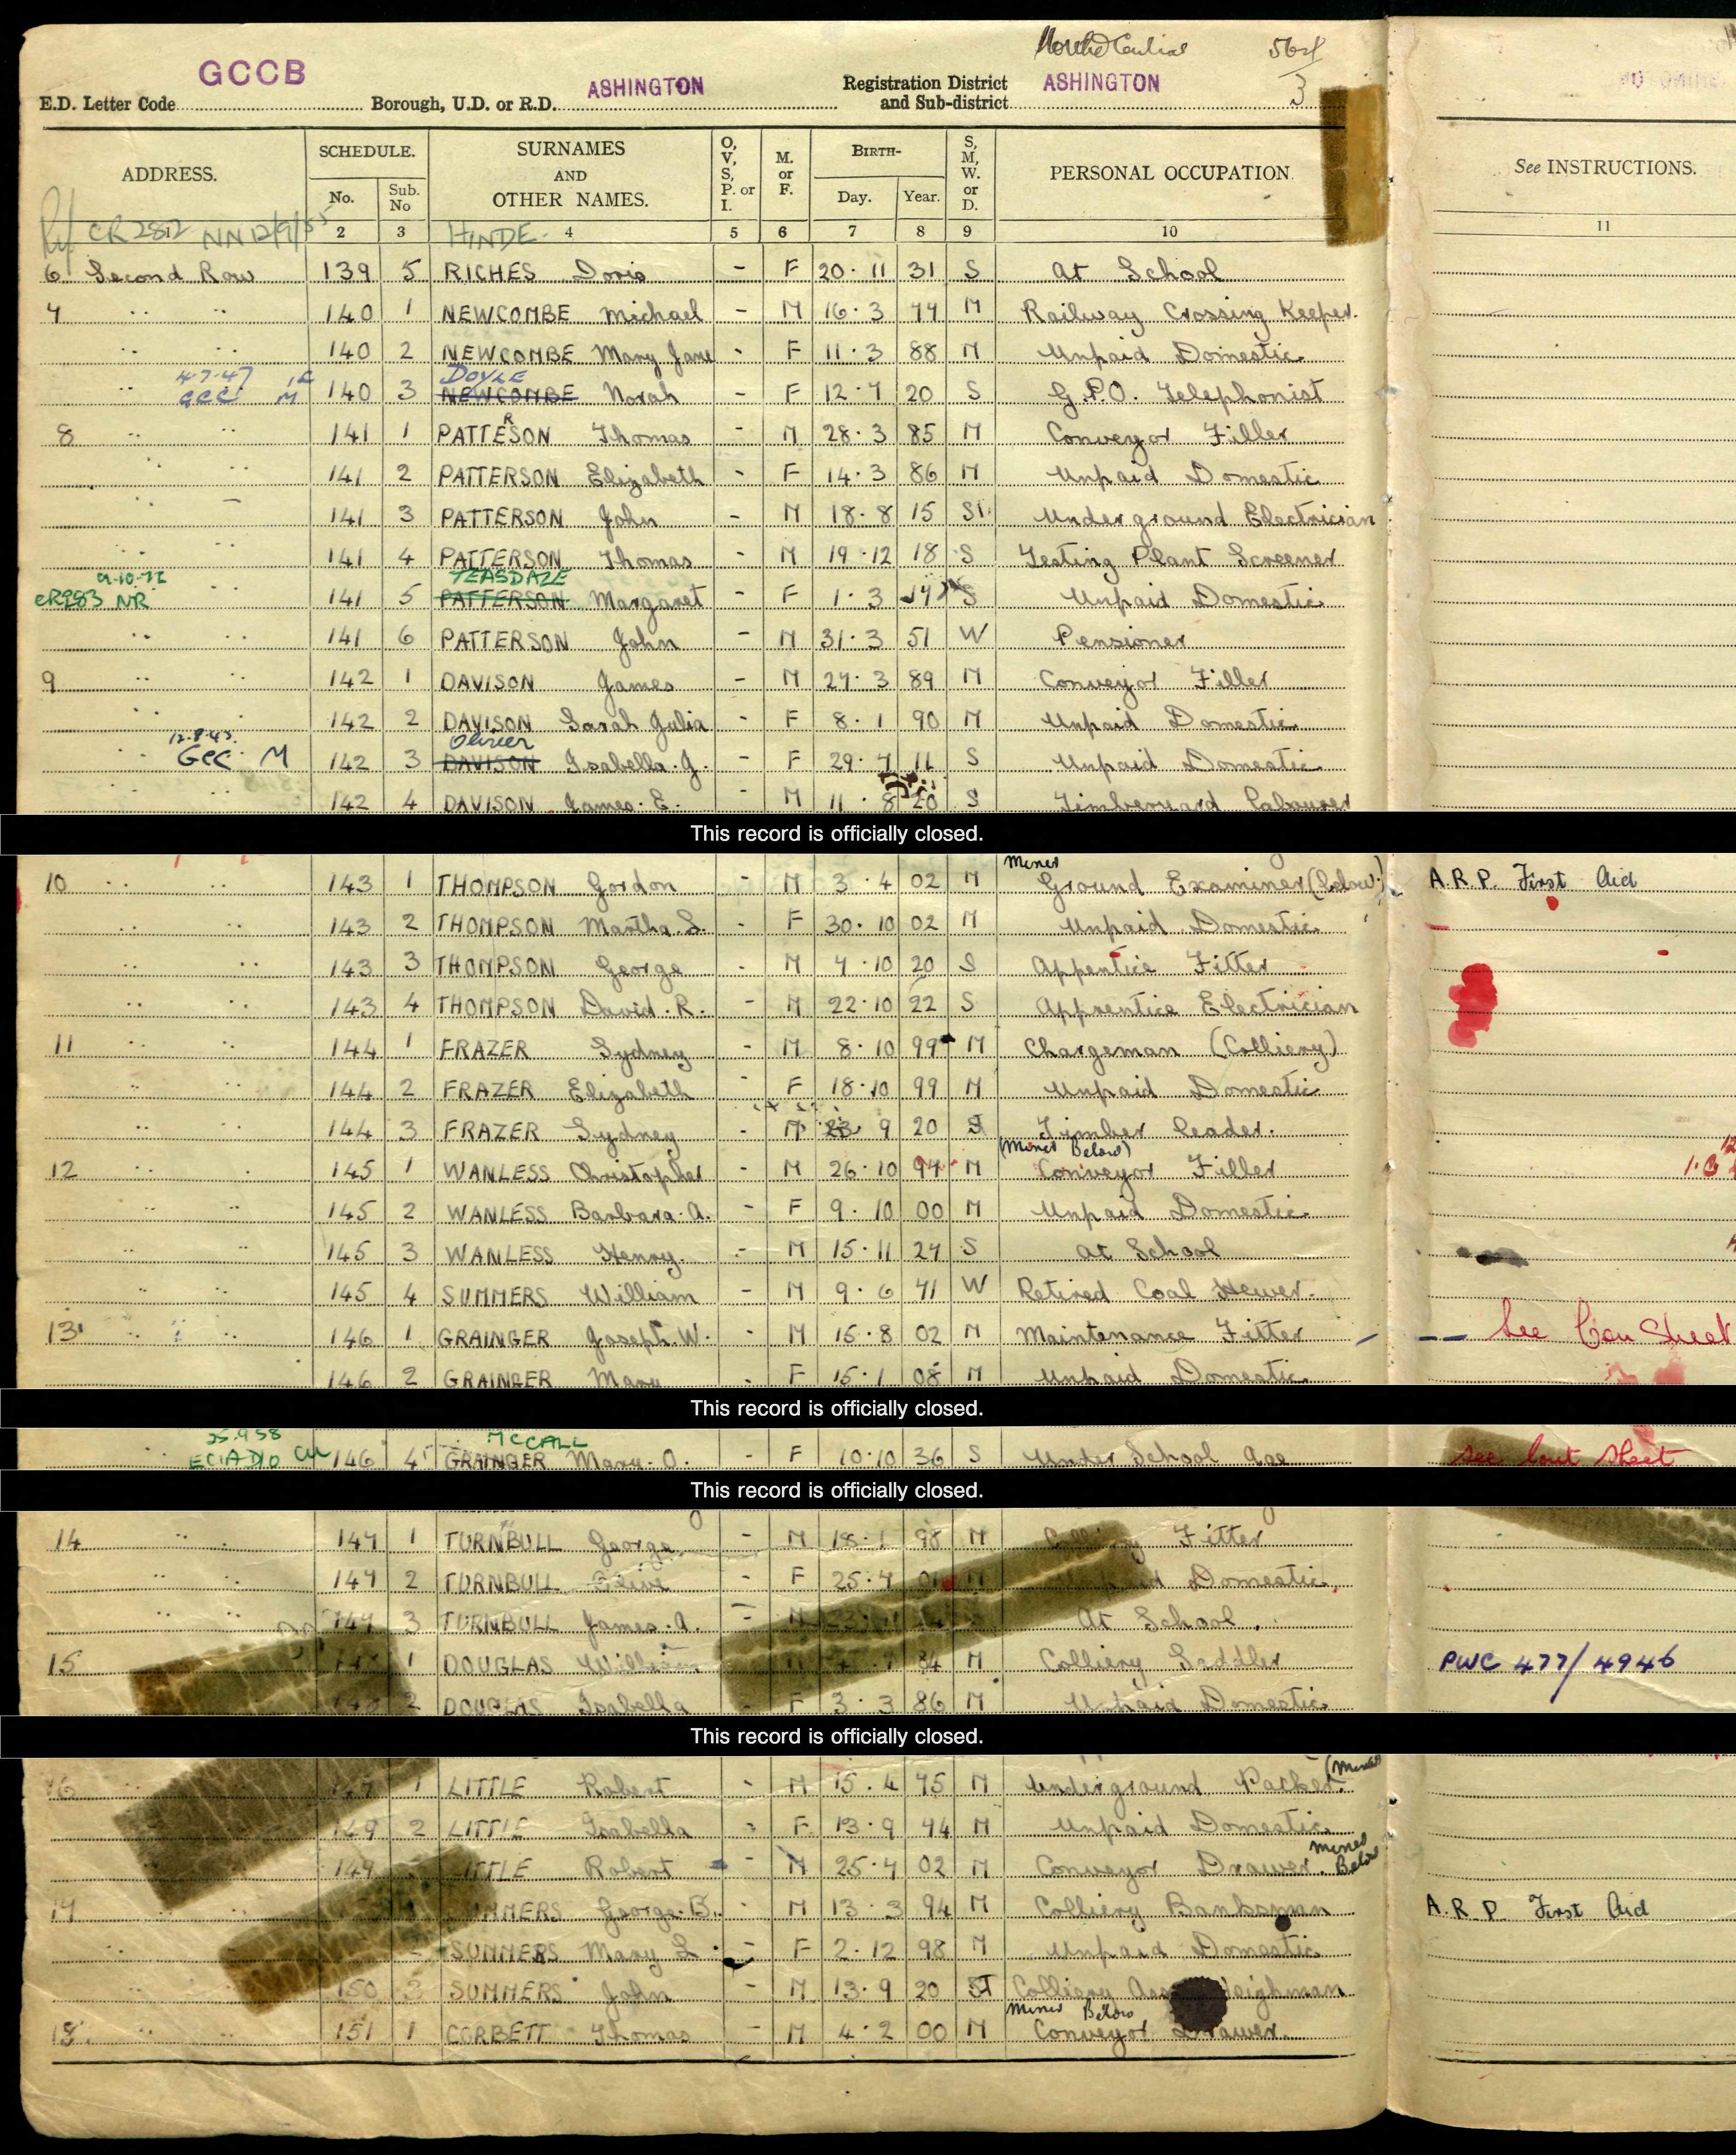 North Central 564/3
GCCB ASHINGTON ASHINGTON
E.D. Letter Code Borough, U.D. or R.D. Registration District and Sub-district
ADDRESS. SCHEDULE. No. Sub. No SURNAMES AND OTHER NAMES. O, V, S, P. or I. M. or F. BIRTH- Day. Year. S, M, W. or D. PERSONAL OCCUPATION. See INSTRUCTIONS.
CR 2812 NN 12/9/55 2 3 4 5 6 7 8 9 10 11
HINDE
6 Second Row 139 5 RICHES Doris - F 20·11 31 S At School
7 " " 140 1 NEWCOMBE Michael - M 16·3 77 M Railway Crossing Keeper.
" " 140 2 NEWCOMBE Mary Jane - F 11·3 88 M Unpaid Domestic
4-7-47 DOYLE
" GCC M 140 3 NEWCOMBE Norah - F 12·7 20 S G.P.O. Telephonist
8 " " 141 1 PATTERSON Thomas - M 28·3 85 M Conveyor Filler
" " 141 2 PATTERSON Elizabeth - F 14·3 86 M Unpaid Domestic
" " 141 3 PATTERSON John - M 18·8 15 S Underground Electrician
" " 141 4 PATTERSON Thomas - M 19·12 18 S Testing Plant Screener
TEASDALE
CR283 NR " " 141 5 PATTERSON Margaret - F 1·3 S Unpaid Domestic
" " 141 6 PATTERSON John - M 31·3 51 W Pensioner
9 " " 142 1 DAVISON James - M 27·3 89 M Conveyor Filler
" " 142 2 DAVISON Sarah Julia - F 8·1 90 M Unpaid Domestic
12.8.43. Olivier
" GCC M 142 3 DAVISON Isabella.J. - F 29·7 11 S Unpaid Domestic
" " 142 4 DAVISON James.E. - M 11·8 20 S Timberyard Labourer
This record is officially closed.
Miner
10 " " 143 1 THOMPSON Gordon - M 3·4 02 M Ground Examiner (below) A.R.P. First Aid
" " 143 2 THOMPSON Martha.S. - F 30·10 02 M Unpaid Domestic
" " 143 3 THOMPSON George - M 7·10 20 S Appentice Fitter
" " 143 4 THOMPSON David.R. - M 22·10 22 S Apprentice Electrician
11 " " 144 1 FRAZER Sydney - M 8·10 99 M Chargeman (Colliery)
" " 144 2 FRAZER Elizabeth - F 18·10 99 M Unpaid Domestic
" " 144 3 FRAZER Sydney - M 23 9 20 S Timber Leader.
(Miner Below)
12 " " 145 1 WANLESS Christopher - M 26·10 97 M Conveyor Filler
" " 145 2 WANLESS Barbara.A. - F 9·10 00 M Unpaid Domestic
" " 145 3 WANLESS Henry. - M 15·11 27 S At School
" " 145 4 SUMMERS William - M 9·6 71 W Retired Coal Hewer.
13 " " 146 1 GRAINGER Joseph.W. - M 15·8 02 M Maintenance Fitter See Con Sheet
146 2 GRAINGER Mary - F 15·1 08 M Unpaid Domestic
This record is officially closed.
25.9.58 McCALL
146 4 GRAINGER Mary.O. - F 10·10 36 S Under School Age See Cont Sheet
This record is officially closed.
14 " " 147 1 TURNBULL George - M 18·1 98 M Colliery Fitter
" " 147 2 TURNBULL Olive - F 25·7 M Unpaid Domestic
" " 147 3 TURNBULL James.A. - At School.
15 1 DOUGLAS William 84 M Colliery Saddler PWC 477/4946
2 DOUGLAS Isabella F 3·3 86 M Unpaid Domestic
This record is officially closed.
16 149 1 LITTLE Robert - M 15·4 75 M Underground Packer. (Miner)
" " 149 2 LITTLE Isabella - F 13·9 74 M Unpaid Domestic
149 LITTLE Robert - M 25·7 02 M Conveyor Drawer. Miner Below
17 SUMMERS George.B. - M 13·3 94 M Colliery Banksman A.R.P. First Aid
" SUMMERS Mary L. - F 2·12 98 M Unpaid Domestic
" " 150 3 SUMMERS John - M 13·9 20 S Colliery Weighman
Miner Below
18 " " 151 1 CORBETT Thomas - M 4·2 00 M Conveyor Drawer.